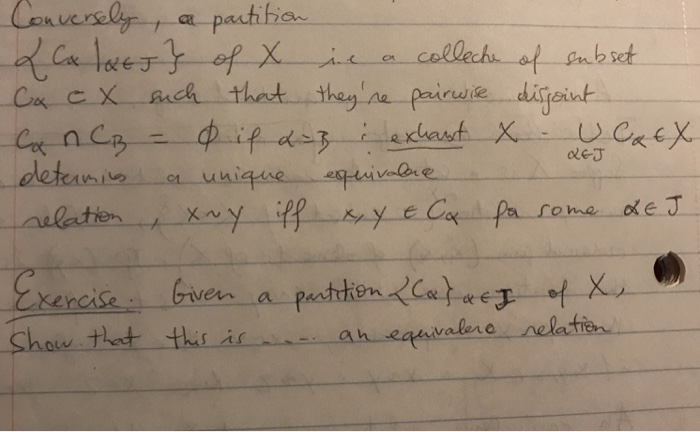 Conversely, a partition
{Cα | α∈J} of X i.e a collecte of subset
Cα ⊂ X such that they're pairwise disjoint
Cα ∩ CB = ϕ if α=B ; exhaust X - ∪ Cα ∈ X
α∈J
determins a unique equivalence
relation, x~y iff x, y ∈ Cα for some α∈J
Exercise. Given a partition {Cα} α∈J of X,
Show that this is ..... an equivalence relation